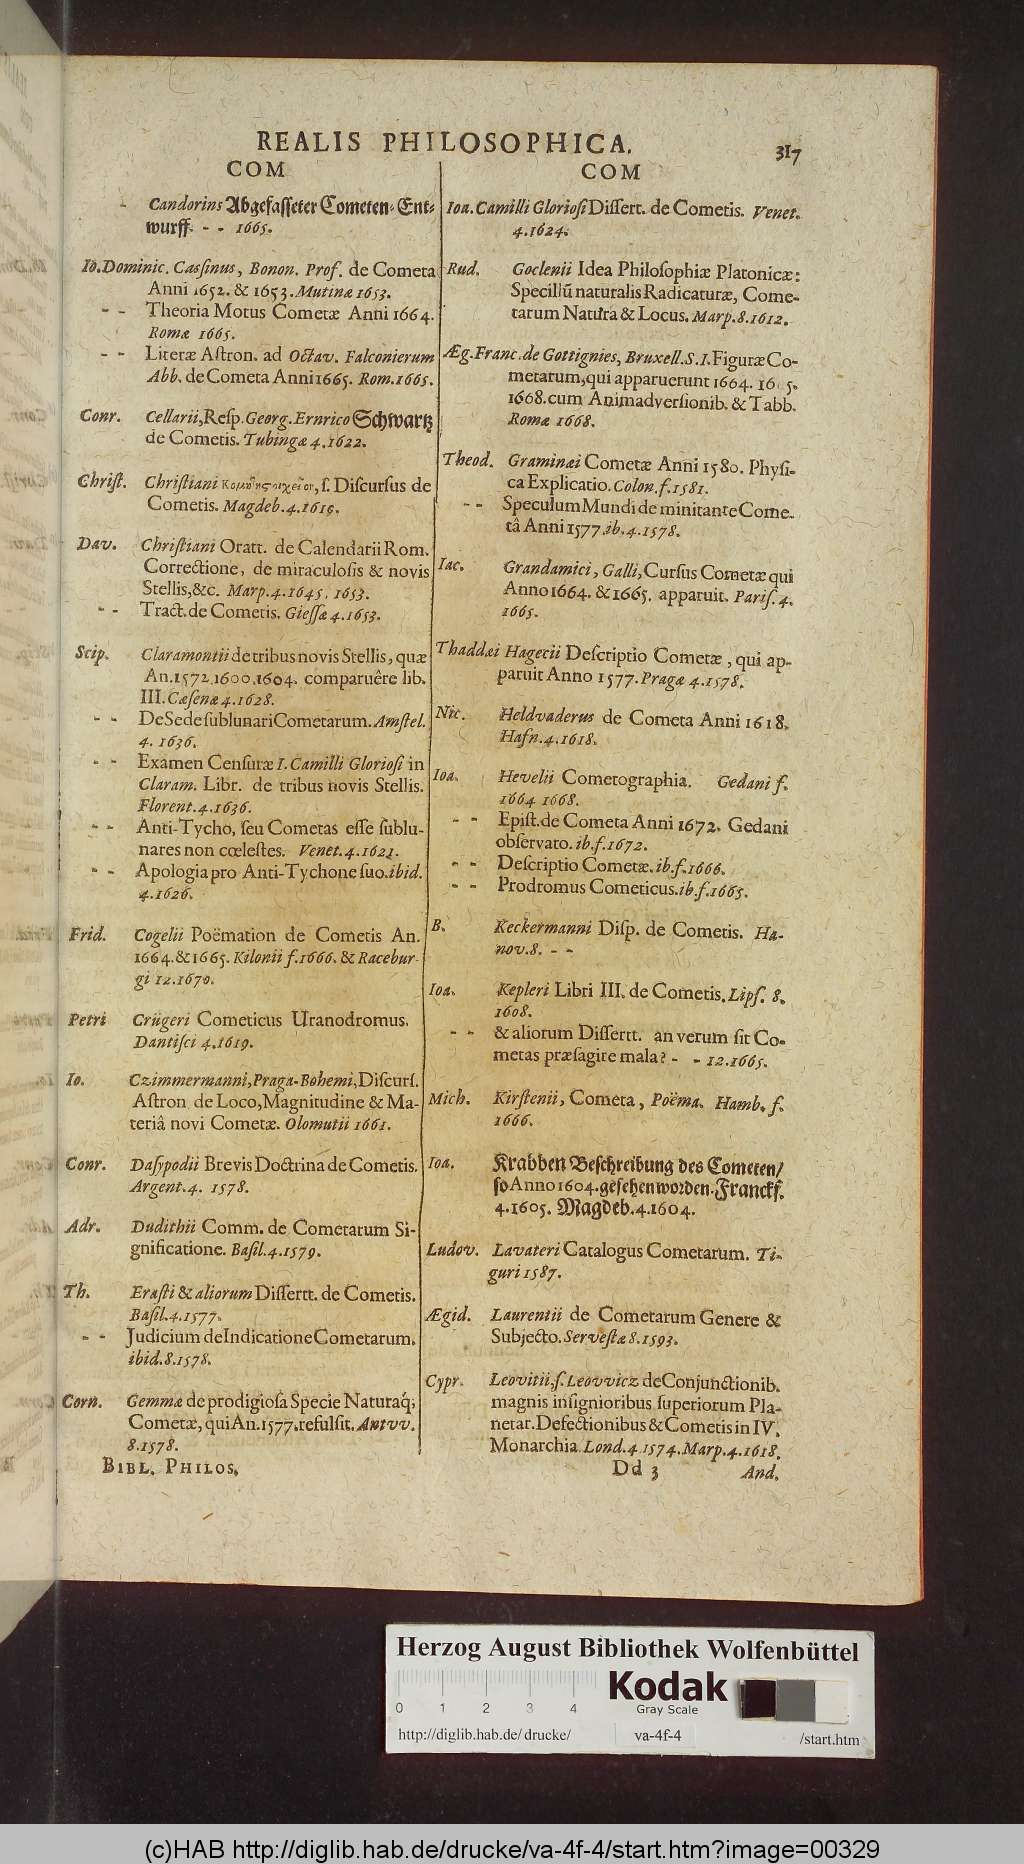 REALIS PHILOSOPHICA.
317
COM
Candorins Abgefasseter Cometen-Ent-
wurff. - - 1665.
Io. Dominic. Cassinus, Bonon. Prof. de Cometa
Anni 1652. & 1653. Mutinæ 1653.
- - Theoria Motus Cometæ Anni 1664.
Romæ 1665.
- - Literæ Astron. ad Octav. Falconierum
Abb. de Cometa Anni 1665. Rom. 1665.
Conr. Cellarii, Resp. Georg. Ernrico Schwartz
de Cometis. Tubingæ 4. 1622.
Christ. Christiani, s. Discursus de
Cometis. Magdeb. 4. 1619.
Dav. Christiani Oratt. de Calendarii Rom.
Correctione, de miraculosis & novis
Stellis, &c. Marp. 4. 1645. 1653.
- - Tract. de Cometis. Giessæ 4. 1653.
Scip. Claramontii de tribus novis Stellis, quæ
An. 1572. 1600. 1604. comparuêre lib.
III. Cæsenæ 4. 1628.
- - De Sede sublunari Cometarum. Amstel.
4. 1636.
- - Examen Censuræ I. Camilli Gloriosi in
Claram. Libr. de tribus novis Stellis.
Florent. 4. 1636.
- - Anti-Tycho, seu Cometas esse sublu-
nares non cœlestes. Venet. 4. 1621.
- - Apologia pro Anti-Tychone suo. ibid.
4. 1626.
Frid. Cogelii Poëmation de Cometis An.
1664. & 1665. Kilonii f. 1666. & Racebur-
gi 12. 1670.
Petri Crügeri Cometicus Uranodromus.
Dantisci 4. 1619.
Io. Czimmermanni, Praga-Bohemi, Discurs.
Astron. de Loco, Magnitudine & Ma-
teriâ novi Cometæ. Olomutii 1661.
Conr. Dasypodii Brevis Doctrina de Cometis.
Argent. 4. 1578.
Adr. Dudithii Comm. de Cometarum Si-
gnificatione. Basil. 4. 1579.
Th. Erasti & aliorum Dissertt. de Cometis.
Basil. 4. 1577.
- - Judicium de Indicatione Cometarum.
ibid. 8. 1578.
Corn. Gemmæ de prodigiosa Specie Naturaq;
Cometæ, qui An. 1577. refulsit. Antvv.
8. 1578.
BIBL. PHILOS.
COM
Ioa. Camilli Gloriosi Dissert. de Cometis. Venet.
4. 1624.
Rud. Goclenii Idea Philosophiæ Platonicæ:
Specillũ naturalis Radicaturæ, Come-
tarum Natura & Locus. Marp. 8. 1612.
Æg. Franc. de Gottignies, Bruxell. S. I. Figuræ Co-
metarum, qui apparuerunt 1664.
1668. cum Animadversionib. & Tabb.
Romæ 1668.
Theod. Graminæi Cometæ Anni 1580. Physi-
ca Explicatio. Colon. f. 1581.
- - Speculum Mundi de minitante Come-
tâ Anni 1577. ib. 4. 1578.
Iac. Grandamici, Galli, Cursus Cometæ qui
Anno 1664. & 1665. apparuit. Paris. 4.
1665.
Thaddæi Hagecii Descriptio Cometæ, qui ap-
paruit Anno 1577. Pragæ 4. 1578.
Nic. Heldvaderus de Cometa Anni 1618.
Hafn. 4. 1618.
Ioa. Hevelii Cometographia. Gedani f.
1664 1668.
- - Epist. de Cometa Anni 1672. Gedani
observato. ib. f. 1672.
- - Descriptio Cometæ. ib. f. 1666.
- - Prodromus Cometicus. ib. f. 1665.
B. Keckermanni Disp. de Cometis. Ha-
nov. 8. - -
Ioa. Kepleri Libri III. de Cometis. Lips. 8.
1608.
- - & aliorum Dissertt. an verum sit Co-
metas præsagire mala? - - 12. 1665.
Mich. Kirstenii, Cometa, Poëma. Hamb. f.
1666.
Ioa. Krabben Beschreibung des Cometen/
so Anno 1604. gesehen worden. Franckf.
4. 1605. Magdeb. 4. 1604.
Ludov. Lavateri Catalogus Cometarum. Ti-
guri 1587.
Ægid. Laurentii de Cometarum Genere &
Subjecto. Servestæ 8. 1593.
Cypr. Leovitii, s. Leovvicz de Conjunctionib.
magnis insignioribus superiorum Pla-
netar. Defectionibus & Cometis in IV.
Monarchia. Lond. 4. 1574. Marp. 4. 1618.
Dd 3
And.
Herzog August Bibliothek Wolfenbüttel
0 1 2 3 4
Kodak
Gray Scale
http://diglib.hab.de/drucke/ va-4f-4 /start.htm
(c)HAB http://diglib.hab.de/drucke/va-4f-4/start.htm?image=00329